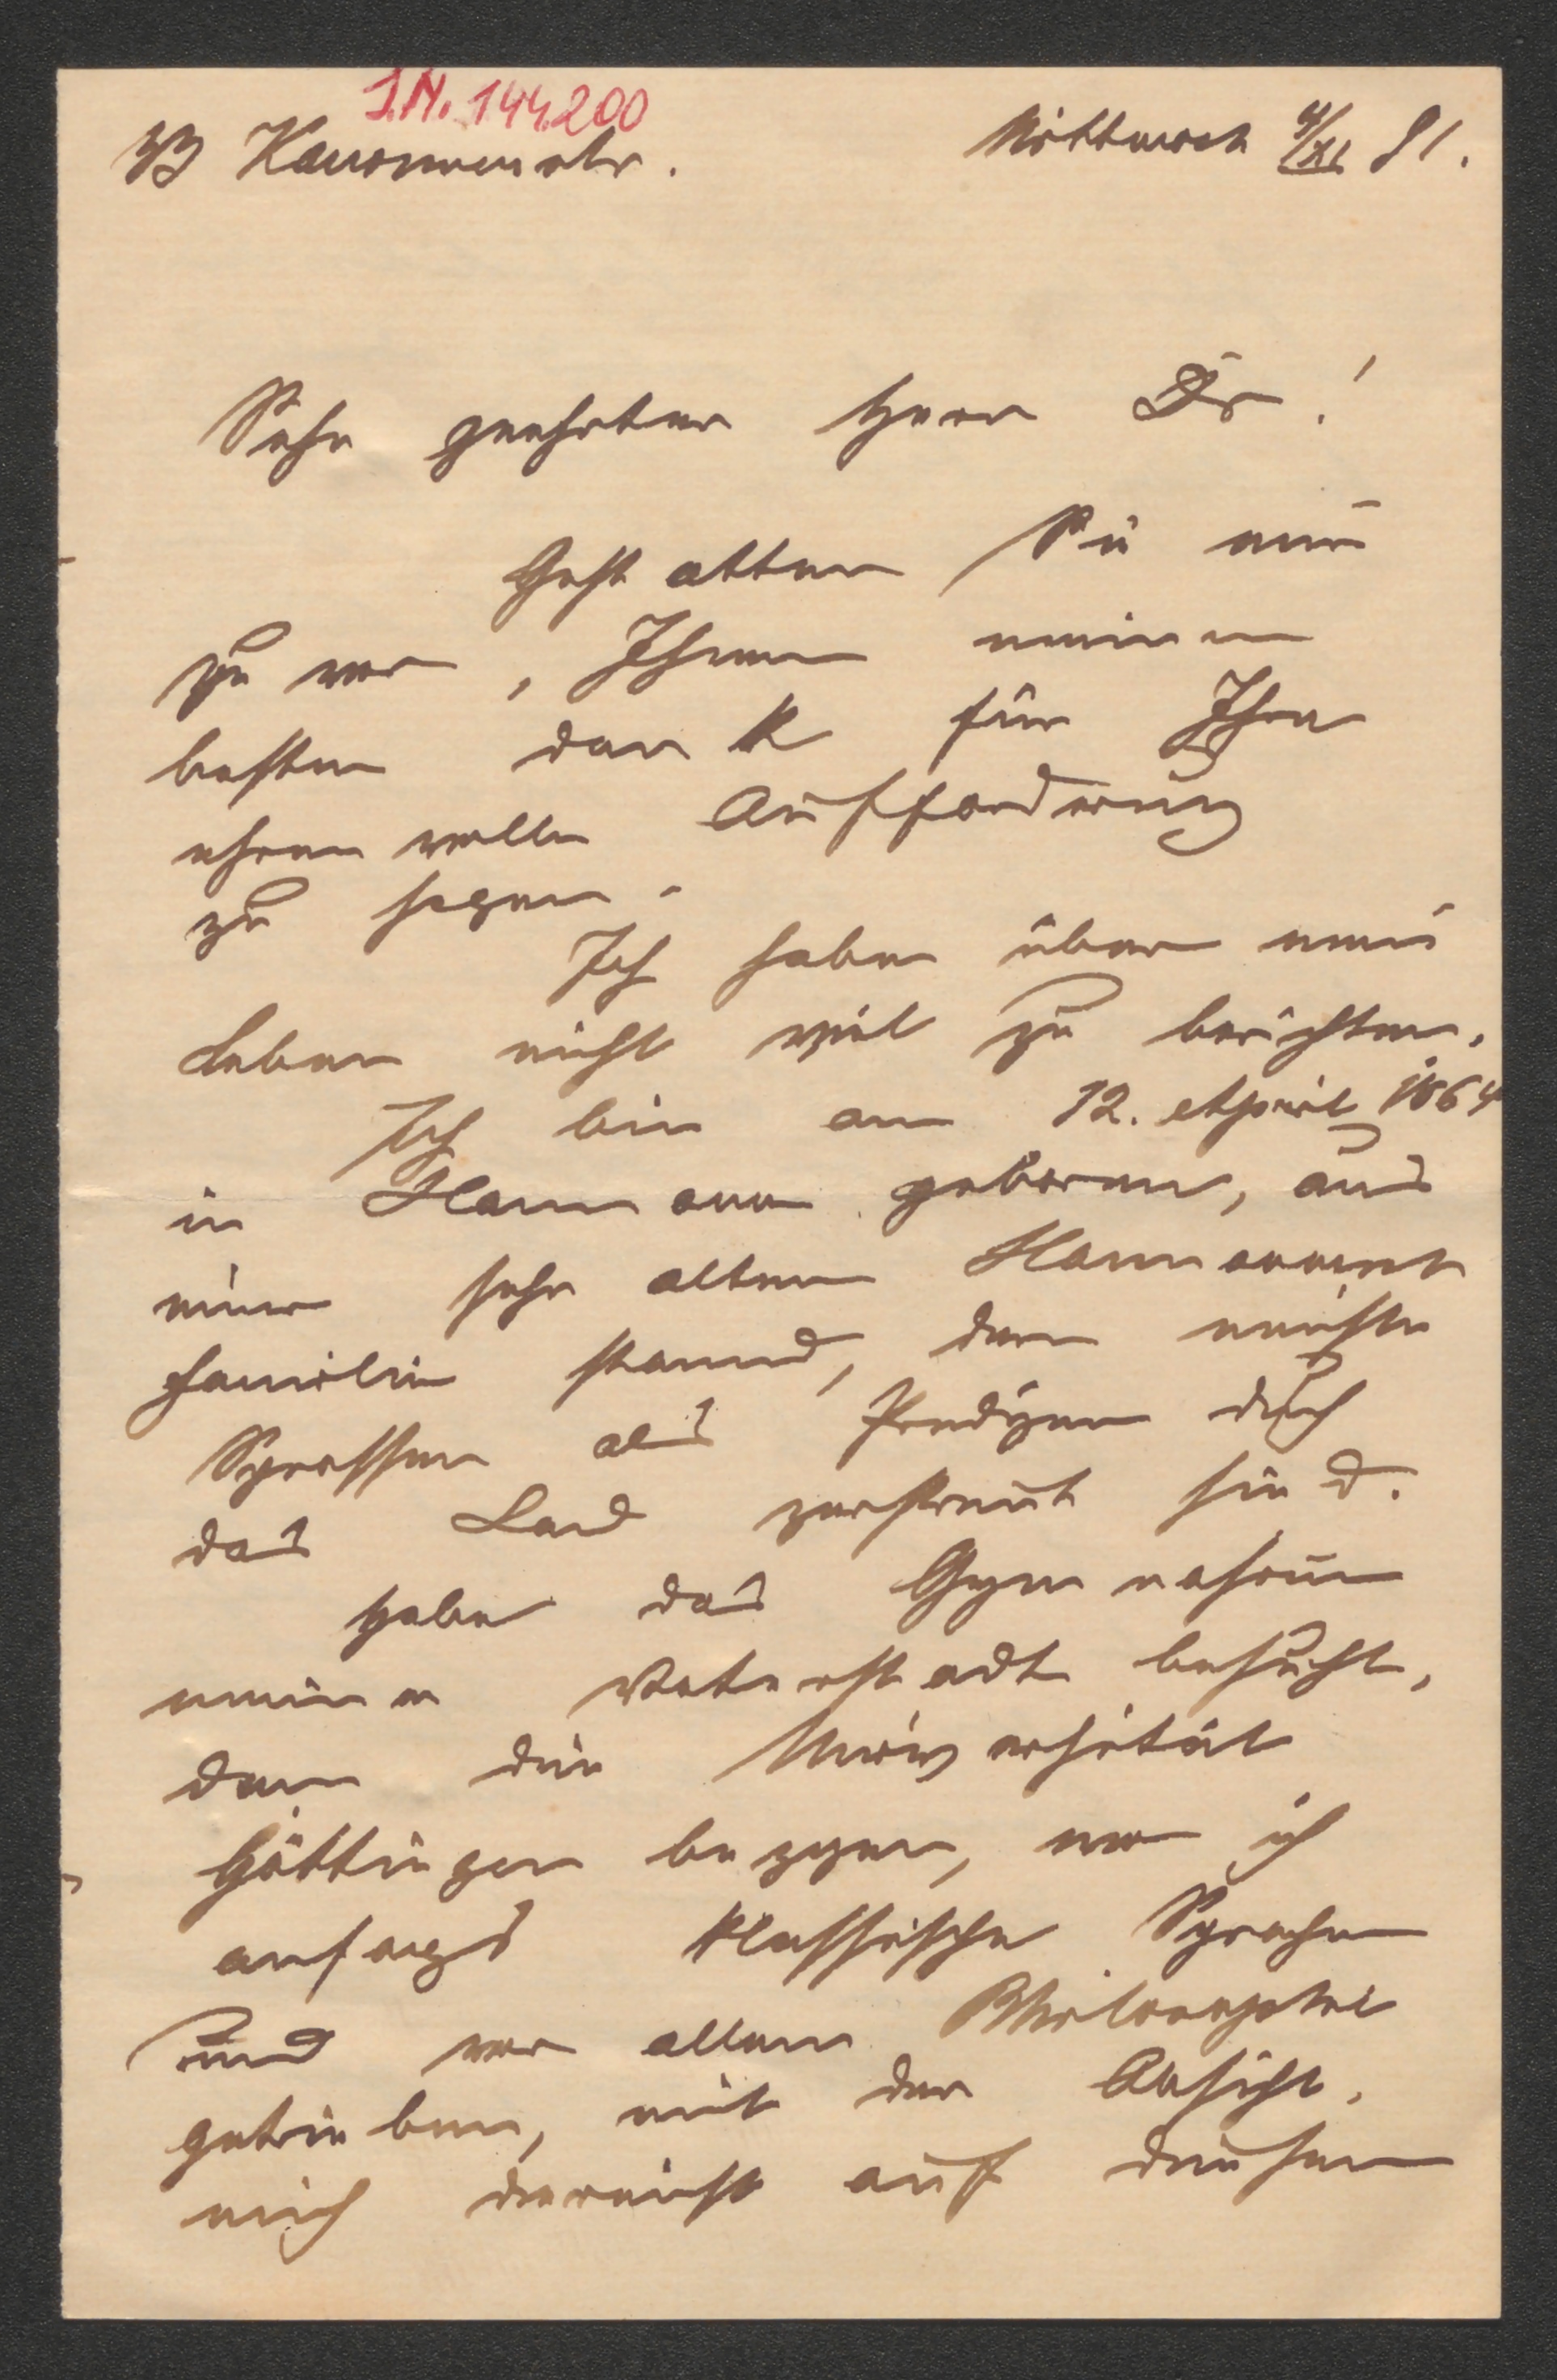 J.N. 144.200
33 Kanonenstr.
Mittwoch 4/XI 91.
Sehr geehrter Herr Dr!
Gestatten Sie mir
zuvor, Ihnen meinen
besten dank für Ihre
ehrenvolle Aufforderung
zu sagen.
Ich habe über mein
Leben nicht viel zu berichten.
Ich bin am 12. April 1864
in Hannover geboren, aus
einer sehr alten Hannoverschen
Familie stammend, deren meiste
Sprossen als Prediger durch
das Land zerstreut sind.
Habe das Gymnasium
meiner Vaterstadt besucht,
dann die Universität
Göttingen bezogen, wo ich
anfangs klassische Sprachen
und vor allem Philosophie
getrieben, mit der Absicht,
mich dereinst auf diesem